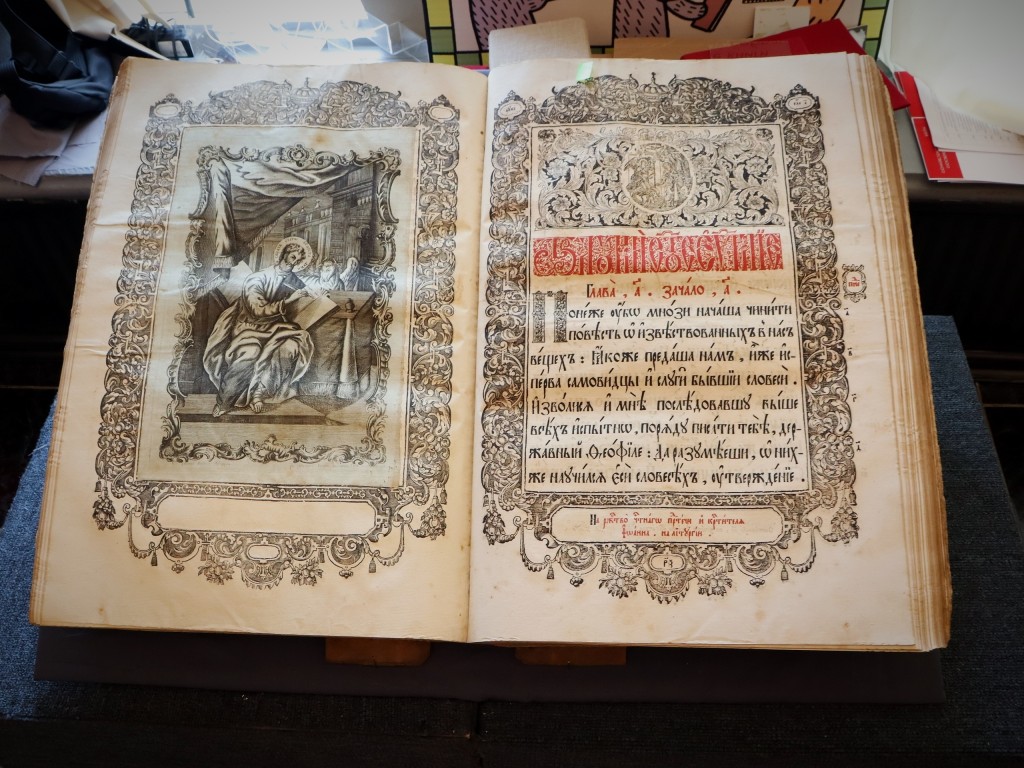 Глава̀ , а҃ . зача́ло , а҃ .
Поне́же ᲂу҆́бѡ мно́зи нача́ша чини́ти
по́вѣсть ѡ҆ и҆звѣ́ствованныхъ в̾ на́съ
ве́щехъ : Ꙗ҆́коже преда́ша на́мъ , и҆̀же и҆с-
пе́рва самови́дцы и҆ слꙋги̑ бы́вшїи словесѝ .
И҆зво́лисѧ и҆ мнѣ̀ послѣ́довавшꙋ вы́ше
всѣ̑хъ и҆спы́тнѡ , порѧ́дꙋ писа́ти тебѣ̀ , дер-
жа́вный Ѳео́фїле : Да разꙋмѣ́еши , ѡ҆ ни́х-
же наꙋчи́лсѧ є҆сѝ словесѣ́хъ , ᲂу҆твержде́нїе .
На ржⷭ҇тво̀ чтⷭ҇на́гѡ прⷣте́чи и҆ крⷭ҇ти́телѧ
І҆ѡа́нна . на лїтꙋргі́и .
РЗ҃